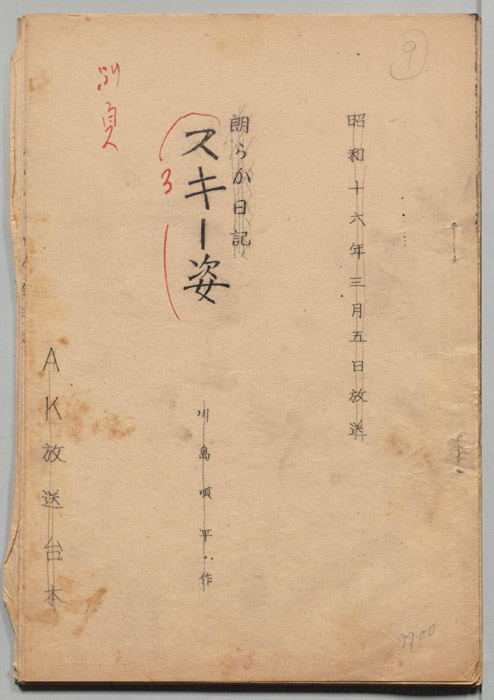 ⑨
昭和十六年三月五日放送
朗らか日記
スキー姿
3
川島順平・作
別頁
AK放送台本
9900